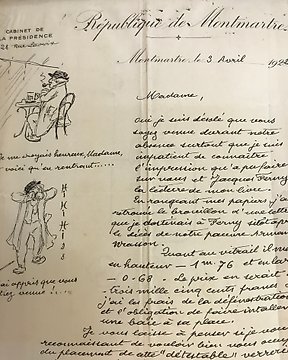 CABINET DE
LA PRÉSIDENCE
République de Montmartre
Montmartre, le 3 Avril 192
Madame,
oui je suis désolé que vous
soyez venue durant notre
absence surtout que je suis
impatient de connaître
l'impression qu'a pu faire
sur vous et Jacques Ferny
la lecture de mon livre.
En rangeant mes papiers j'ai
retrouvé le brouillon d'une lettre
que je destinais à Ferny sitôt après
le décès de notre pauvre
Quant au vitrail il me
en hauteur - 1m.76 et en lar
- 0.68 - Le prix en serait
trois mille cinq cents francs
j'ai les frais de la
et l'obligation de faire
une baie à sa place.
Je vous laisse à penser si je vous
reconnaissant de vouloir bien nous
du placement de cette "détestable" verrerie
je me croyais heureux, Madame,
voici qu'en rentrant.....
Hi Hi Hi
j'ai appris que vous
étiez venue ....